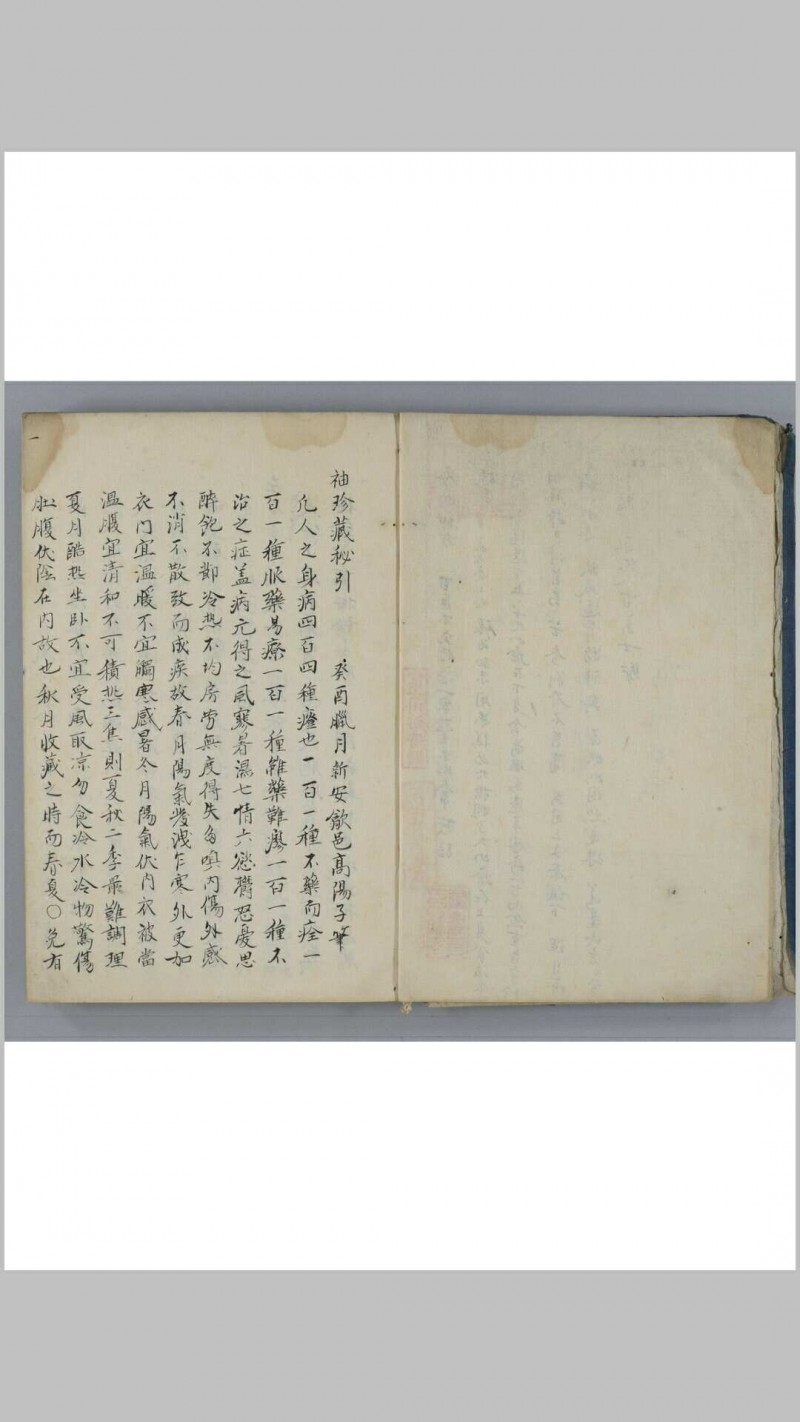 袖珍藏秘引 癸酉臘月新安歙邑高陽子筆
凡人之身病四百四種癧也一百一種不藥而痊一
百一種服藥易療一百一種雖藥難療一百一種不
治之症盖病元得之風寒暑濕七情六慾欝怒憂思
醉飽不節冷熱不均房劳無度得失多嗔内傷外感
不消不散致而成疾故春月陽氣發洩乍寒外更加
衣门宜溫暖不宜觸寒感暑冬月陽氣伏内衣被當
溫腹宜清和不可積熱三焦則夏秋二季最難調理
夏月酷热坐卧不宜受風取凉勿食冷水冷物驚傷
肚腹伏陰在内故也秋月收藏之時而春夏〇免有